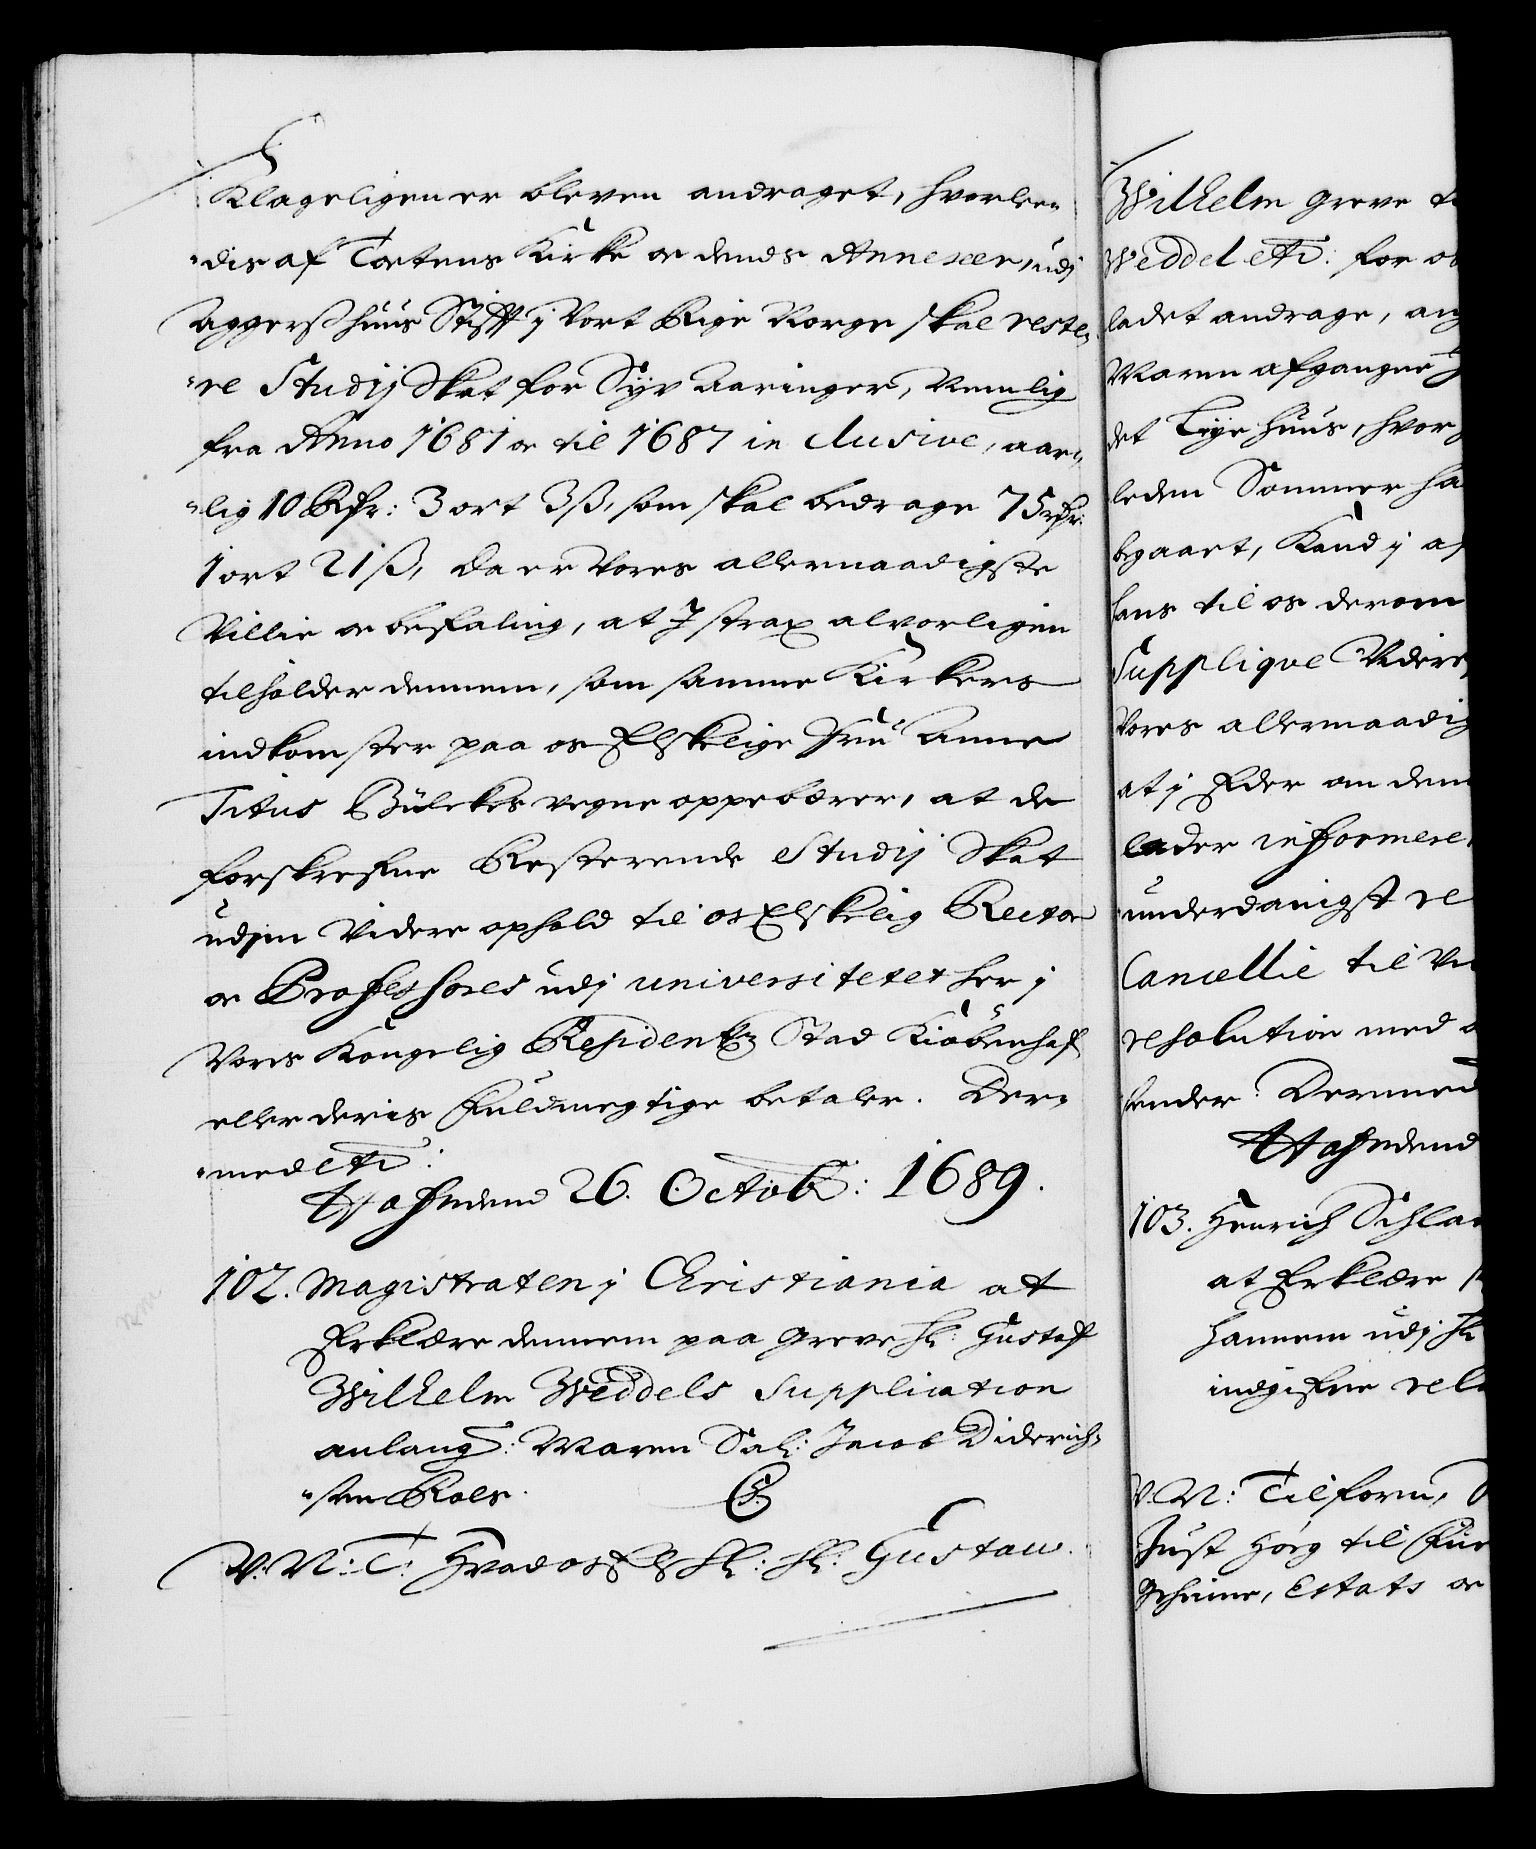 Klageligen er bleven andraget, hvorlee-
"dis af Totens Kirke oc dends Annexer, udj
Aggerszhuus Stifft j Vort Rige Norge skal reste-
"re Studij Skat for Syv Aaringer, Nemlig
fra Anno 1681 oc til 1687 inclusive, aar-
"lig 10 Rdr: 3 ort 3 ß, som skal bedrage 75 rdr:
1 ort 21 ß, Da er Vores allernaadigste
Villie oc befaling, at I strax alvorligen
tilholder dennem, som samme Kirkers
indkomster paa os Elskelige Fru Anne
Titus Bülckes vegne oppebærer, at de
forskrefne Resterende Studij Skat
uden Videre ophold til os Elskelig Rector
oc Professores udj universitetet her j
Vores Kongelig Residentz Stad Kiøbenhafn
eller deris Fuldmegtige betaler. Der-
"med etc:
Hafniæ 26. Octob: 1689.
102. Magistraten j Christiania at
Erklære dennem paa Greve Hr: Gustaff
Wilhelm Weddels Supplication
anlang: Maren Sal: Jacob Diderich-
"sen Roes.
V. N: T: Hvad os Elsk: Hr: Gustaw.
Wilhelm Greve t
Weddel etc: for os
ladet andrage, ang
Maren afgangne J
det Leye huus, hvor
leden Sommer ha
begaaet, Kand j af
hans til os derom
Supplique Videre
Vores allernaadig
at j Eder om dem
lader informere,
underdanigst re
Cancellie til Vi
resolution med
sender. Dermed
Hafniæ d
103. Henrich Schla
at Erklære
hannem udj Hr
indgifne rela
V. N: Tilforn,
Just Høeg til Fu
Geheime, Estats oc